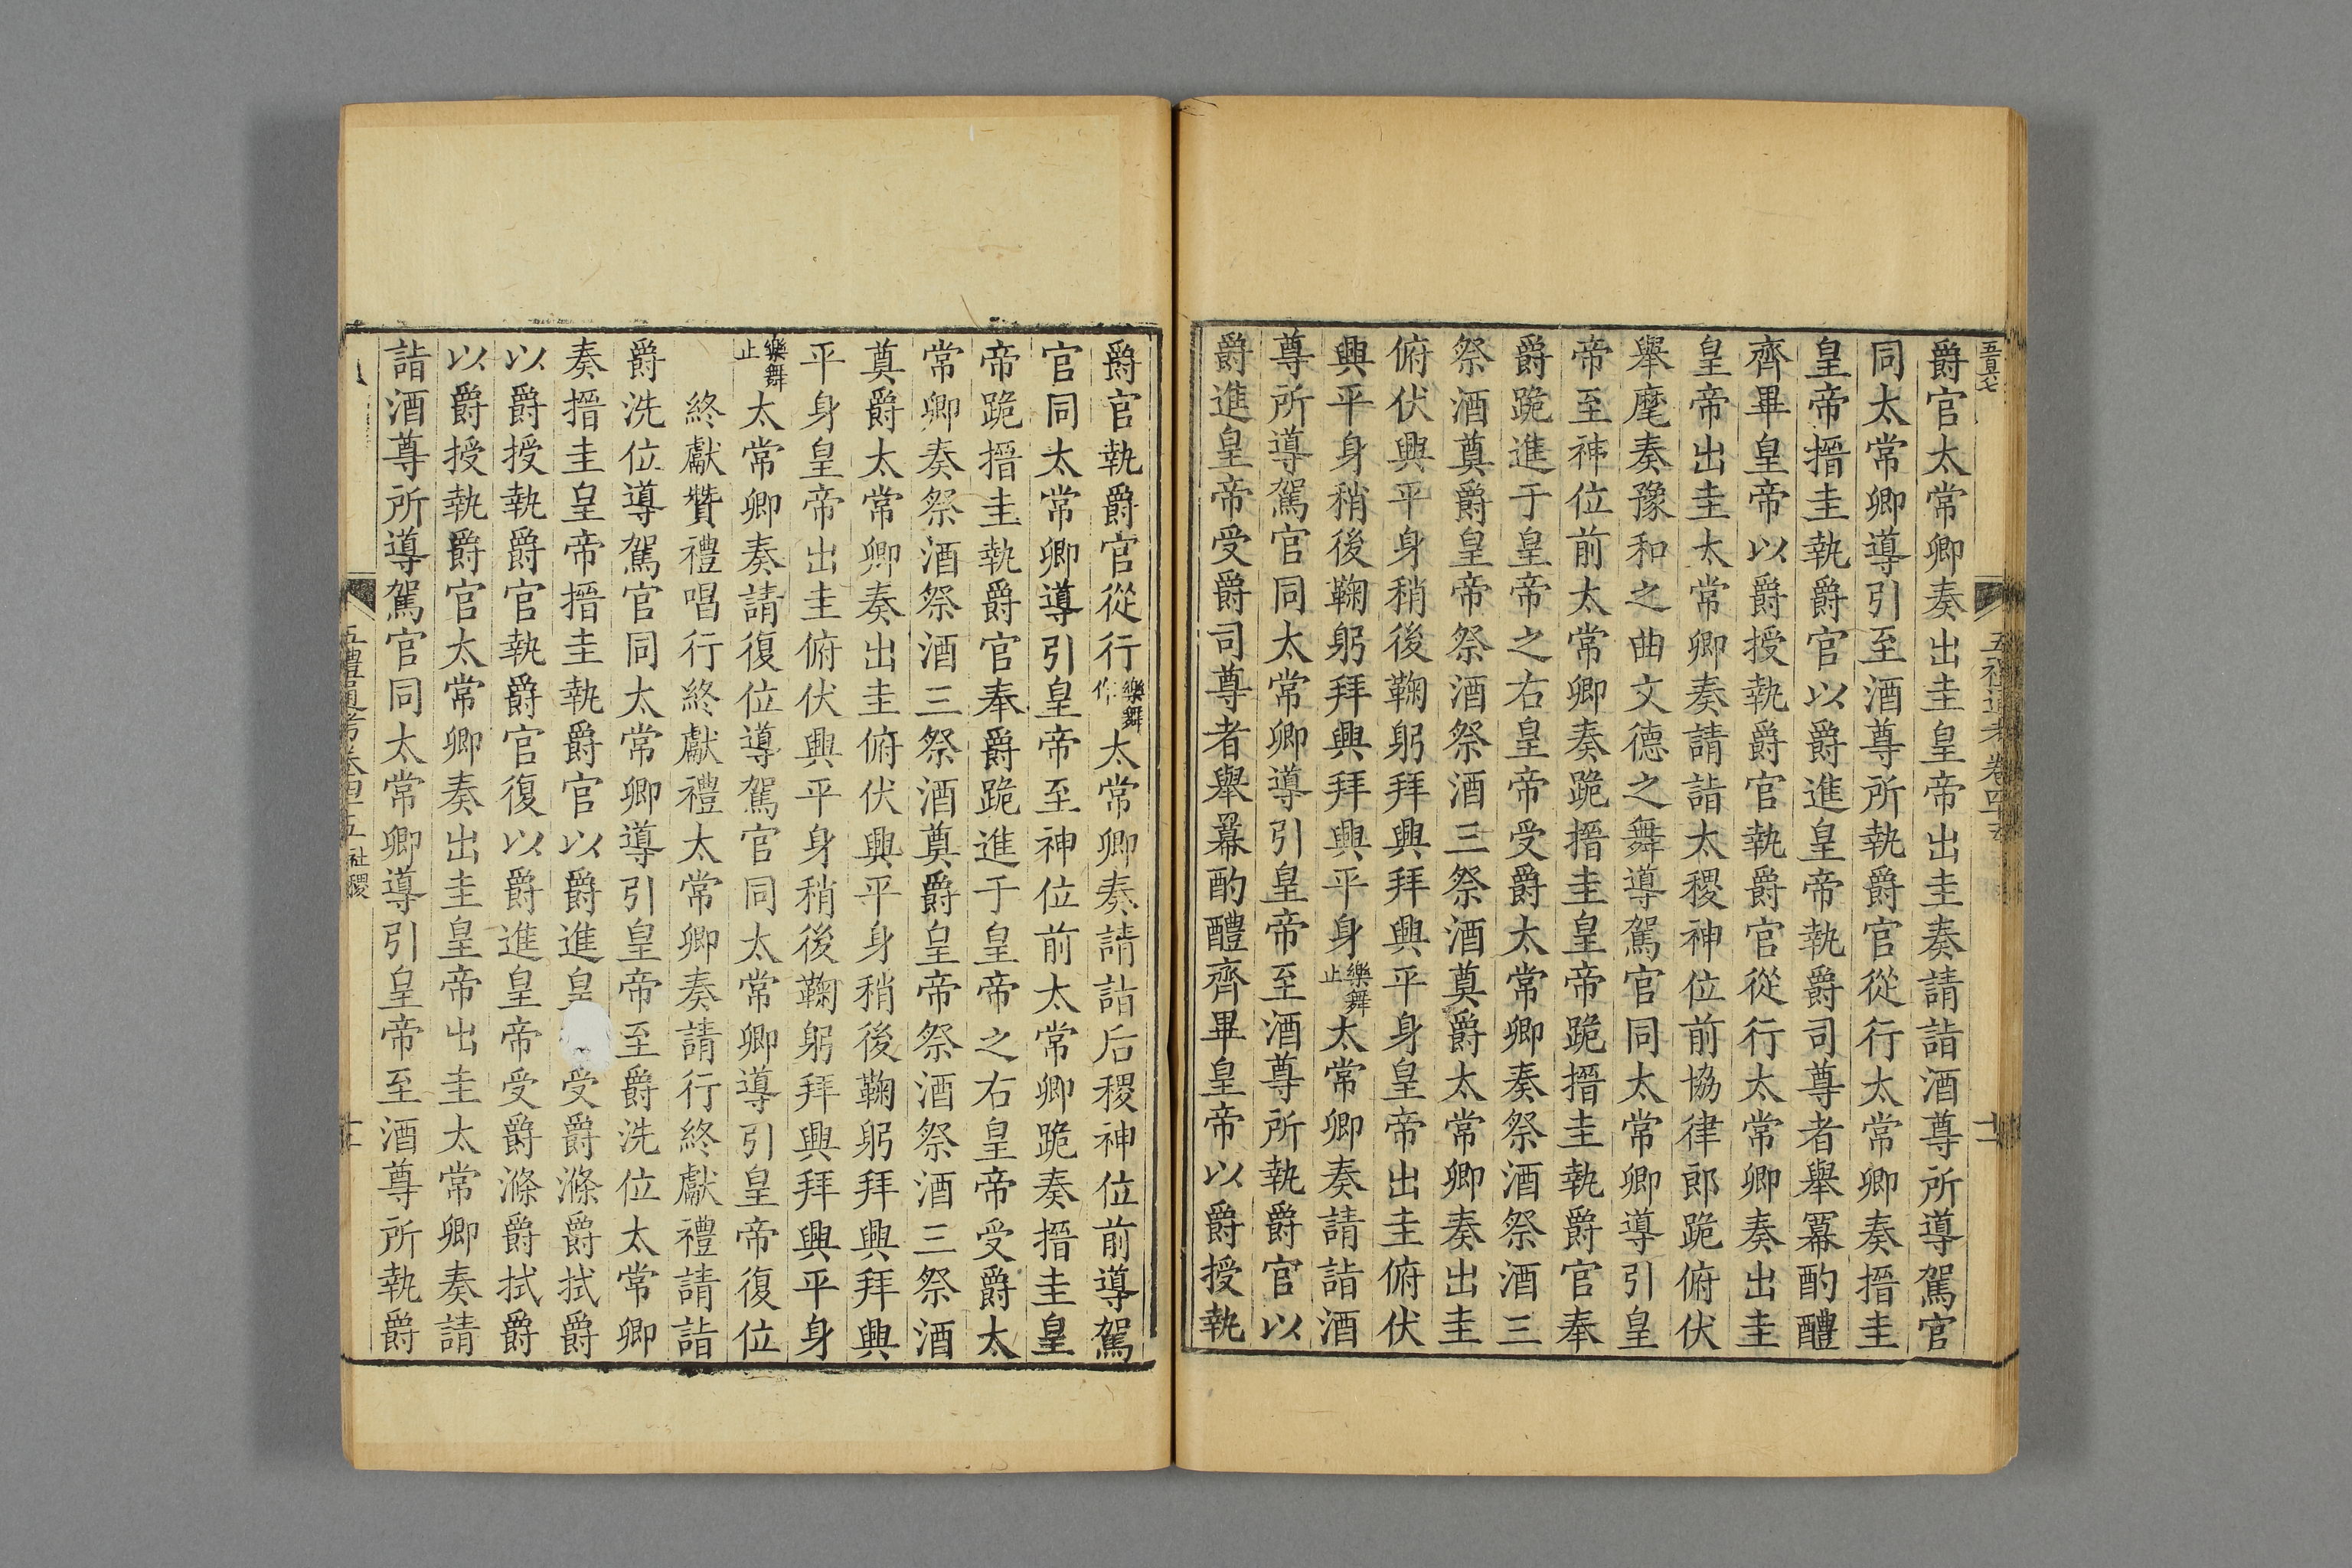 爵官太常卿奏出圭皇帝出圭奏請詣酒尊所導駕官
同太常卿導引至酒尊所執爵官從行太常卿奏搢圭
皇帝搢圭執爵官以爵進皇帝執爵司尊者舉冪酌醴
齊畢皇帝以爵授執爵官執爵官從行太常卿奏出圭
皇帝出圭太常卿奏請詣太稷神位前協律郎跪俯伏
舉麾奏豫和之曲文德之舞導駕官同太常卿導引皇
帝至神位前太常卿奏跪搢圭皇帝跪搢圭執爵官奉
爵跪進于皇帝之右皇帝受爵太常卿奏祭酒祭酒三
祭酒奠爵皇帝祭酒祭酒三祭酒奠爵太常卿奏出圭
俯伏興平身稍後鞠躬拜興拜興平身皇帝出圭俯伏
興平身稍後鞠躬拜興拜興平身樂舞止太常卿奏請詣酒
尊所導駕官同太常卿導引皇帝至酒尊所執爵官以
爵進皇帝受爵司尊者舉冪酌醴齊畢皇帝以爵授執
爵官執爵官從行樂舞作太常卿奏請詣后稷神位前導駕
官同太常卿導引皇帝至神位前太常卿跪奏搢圭皇
帝跪搢圭執爵官奉爵跪進于皇帝之右皇帝受爵太
常卿奏祭酒祭酒三祭酒奠爵皇帝祭酒祭酒三祭酒
奠爵太常卿奏出圭俯伏興平身稍後鞠躬拜興拜興
平身皇帝出圭俯伏興平身稍後鞠躬拜興拜興平身
樂舞止太常卿奏請復位導駕官同太常卿導引皇帝復位
終獻贊禮唱行終獻禮太常卿奏請行終獻禮請詣
爵洗位導駕官同太常卿導引皇帝至爵洗位太常卿
奏搢圭皇帝搢圭執爵官以爵進皇受爵滌爵拭爵
以爵授執爵官執爵官復以爵進皇帝受爵滌爵拭爵
以爵授執爵官太常卿奏出圭皇帝出圭太常卿奏請
詣酒尊所導駕官同太常卿導引皇帝至酒尊所執爵
五禮通考卷四十五 社稷